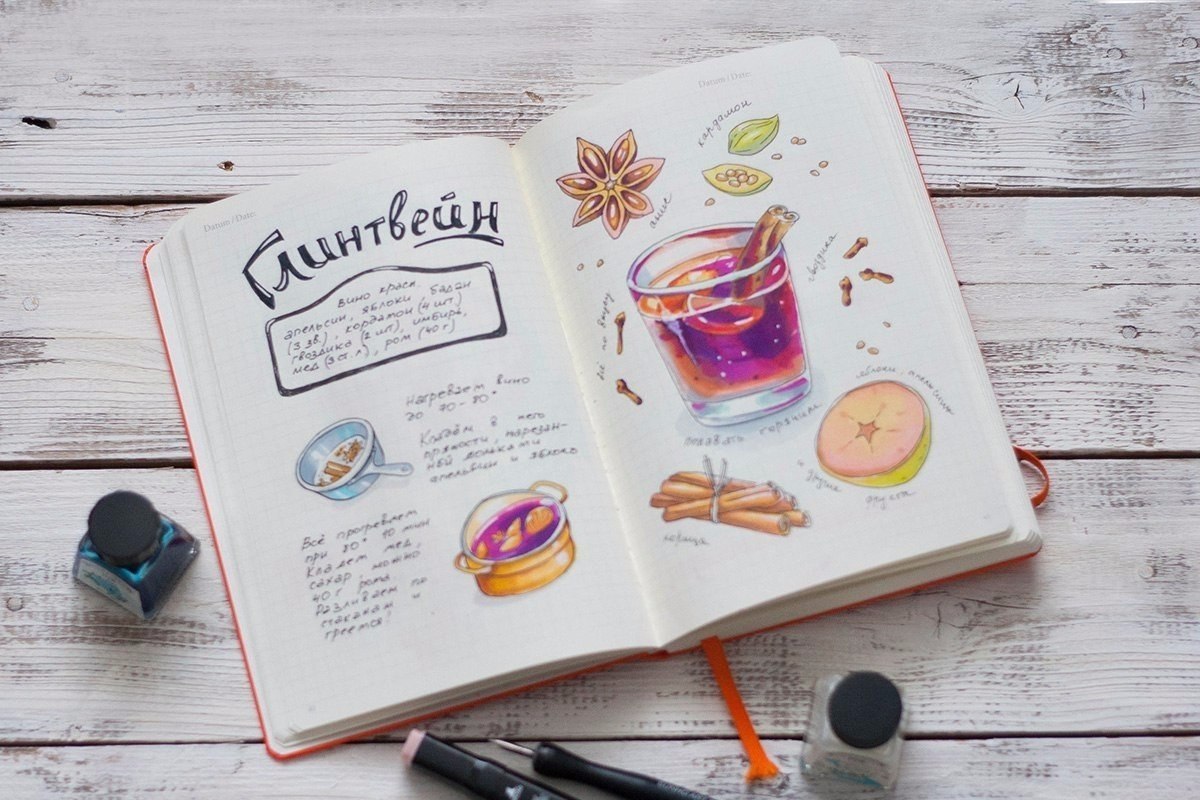 Datum / Date:
Глинтвейн
вино красн.
апельсин, яблоки, бадан
(3 зв.), кардамон (4 шт.)
гвоздика (2 шт), имбирь,
мед (3 ст. л), ром (40 г)
Нагреваем вино
до 70-80°
Кладём в него
пряности, нарезан-
ный дольками
апельсин и яблоко
Всё прогреваем
при 80° 10 мин
Кладем мед,
сахар, можно
40 г рома.
Разливаем по
стаканам и
греемся!
Datum / Date:
кардамон
анис
гвоздика
всё по вкусу
яблоки, апельсины
подавать горячим
и другие
фрукты
корица